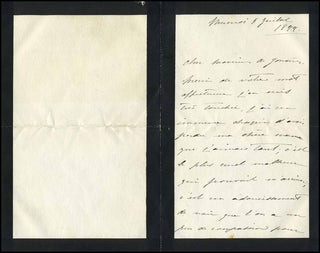 Mercredi 5 Juillet
1899.
Cher Monsieur de
Merci de votre mot
affectueux j'en suis
très touchée, j'ai un
chagrin d'avoir
perdu ma chère
que j'aimais tant, c'est
le plus malheur
qui pouvait
c'est un adoucissement
de voir que l'on a un
peu de compassion pour